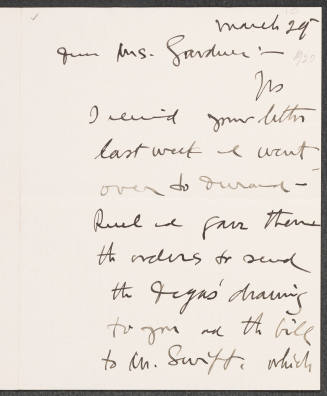 March 29
Dear Mrs. Gardner :—
Yes
I receiv'd your letter
last week & went
over to Durand-
Ruel and gave them
the orders to send
the Degas' drawing
to you and the bill
to Mr. Swift. which